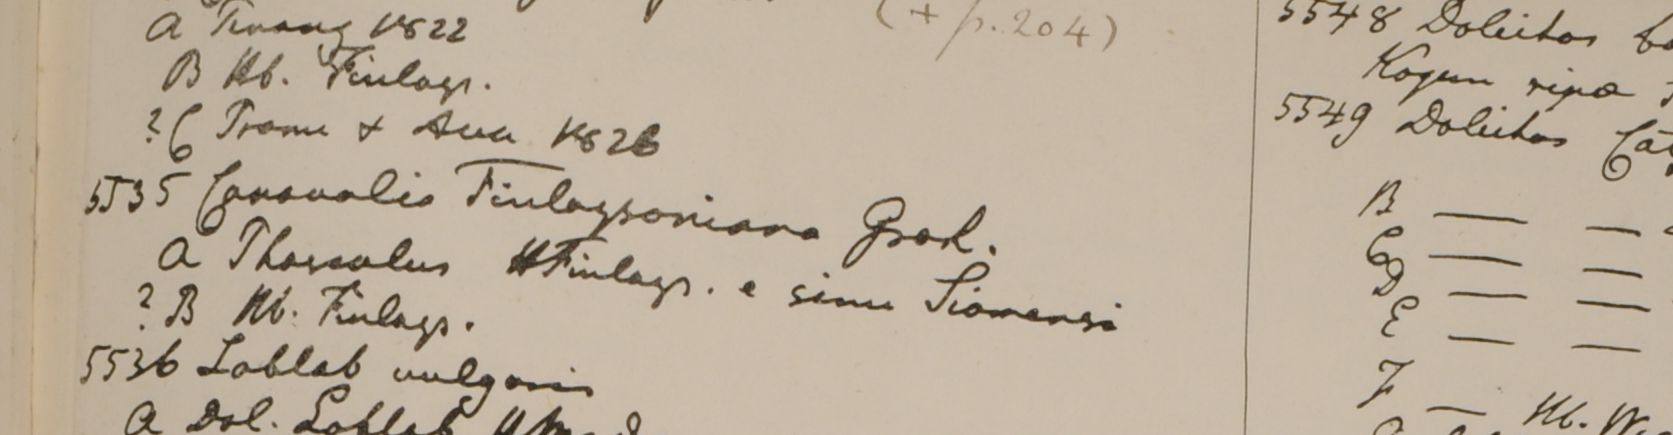 (+ p. 204)
A Penang 1822
B Hb. Finlays.
? C Prome & Ava 1826
5535 Canavalia Finlaysoniana Grah.
A Phaseolus HFinlays. e sinu Siamensi
? B Hb. Finlays.
5536 Lablab vulgaris
A Dol. Lablab
5548 Dolichos
Kogun ripa
5549 Dolichos
B — —
C — —
D — —
E — —
F — Hb. W